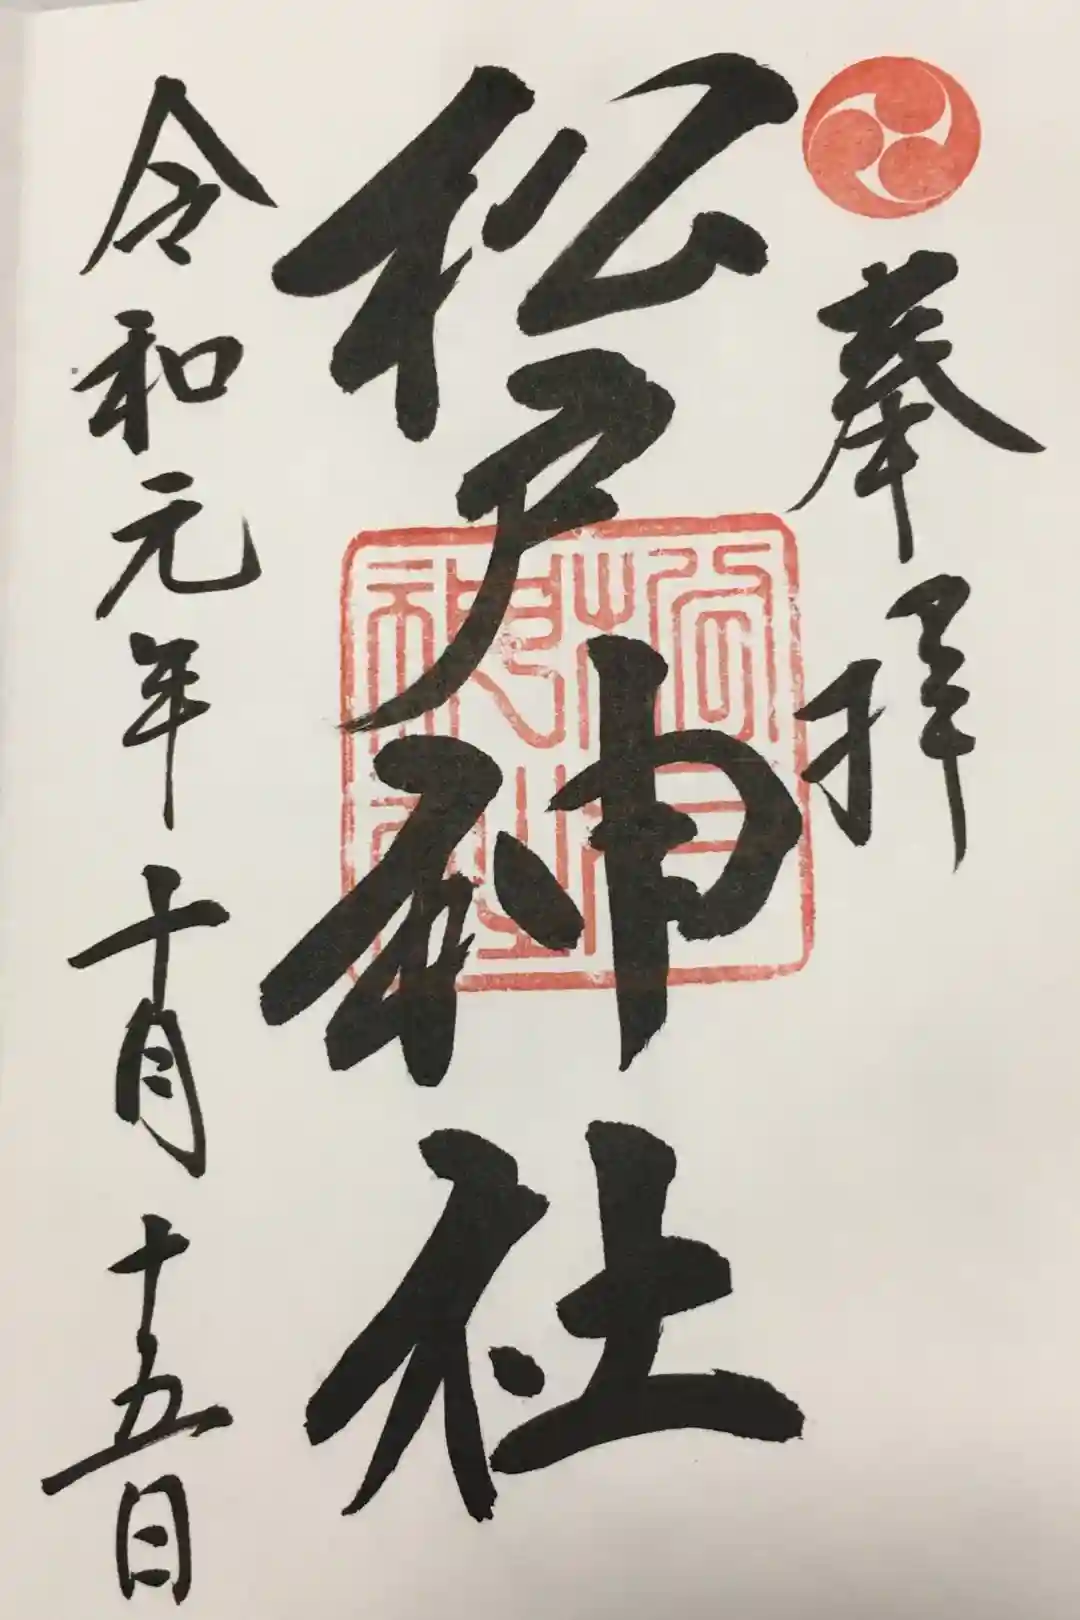 奉拝
松戸神社
松戸神社
令和元年十月十五日